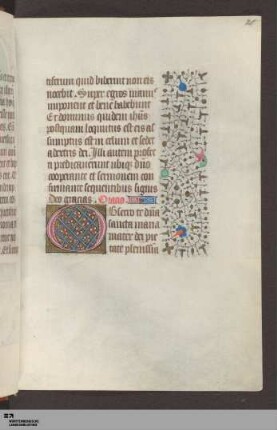 tiferum quid biberint non eis
nocebit. Super egros manus
imponent et bene habebunt
Et dominus quidem ihesus
postquam locutus est eis as
sumptus est in celum et sedet
a dextris dei. Illi autem profec
ti predicaverunt ubique dno
cooperante et sermonem con
firmante sequentibus signis
Deo gracias. Oratio
Obsecro te dna
sancta maria
mater dei pie
tate plenissi